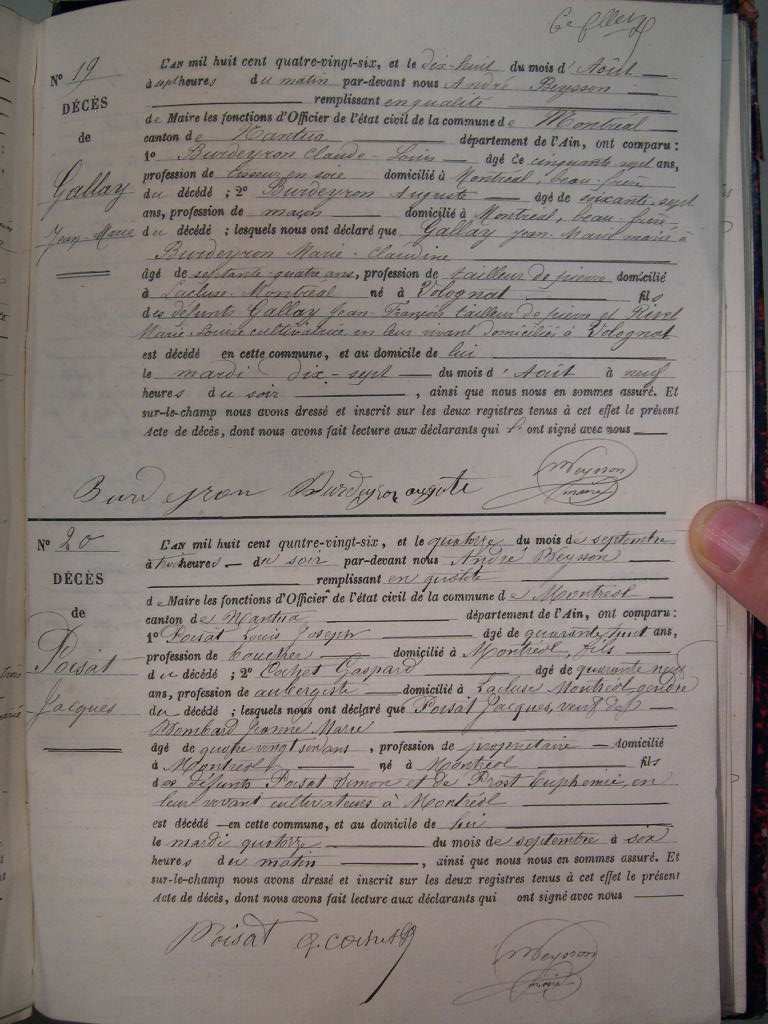 6e
Nº 19
DÉCÈS
de
Gallay
Jean-Marie
L'AN mil huit cent quatre-vingt-six, et le dix-huit du mois d'Août
à sept heures du matin par-devant nous André Peysson
remplissant en qualité
de Maire les fonctions d'Officier de l'état civil de la commune de Montréal
canton de Nantua département de l'Ain, ont comparu :
1º Burdeyron Claude-Louis âgé de cinquante sept ans,
profession de tisseur en soie domicilié à Montréal, beau-frère
du décédé ; 2º Burdeyron Auguste âgé de soixante-sept
ans, profession de maçon domicilié à Montréal, beau-frère
du décédé ; lesquels nous ont déclaré que Gallay Jean-Marie marié à
Burdeyron Marie-Claudine
âgé de septante-quatre ans, profession de tailleur de pierre domicilié
à Lacluse-Montréal né à Volognat fils
des défunts Gallay Jean-François tailleur de pierre et
Marie-Louise cultivatrice en leur vivant domiciliés à Volognat
est décédé en cette commune, et au domicile de lui
le mardi dix-sept du mois d'Août à neuf
heures du soir , ainsi que nous nous en sommes assuré. Et
sur-le-champ nous avons dressé et inscrit sur les deux registres tenus à cet effet le présent
Acte de décès, dont nous avons fait lecture aux déclarants qui ont signé avec nous
Burdeyron Burdeyron augste Peysson
maire
Nº 20
DÉCÈS
de
Poisat
Jacques
L'AN mil huit cent quatre-vingt-six, et le quatorze du mois de septembre
à heures du soir par-devant nous André Peysson
remplissant en qualité
de Maire les fonctions d'Officier de l'état civil de la commune de Montréal
canton de Nantua département de l'Ain, ont comparu :
1º Poisat Louis Joseph âgé de quarante huit ans,
profession de boucher domicilié à Montréal, fils
du décédé ; 2º Cochet Gaspard âgé de quarante neuf
ans, profession de aubergiste domicilié à Lacluse Montréal gendre
du décédé ; lesquels nous ont déclaré que Poisat Jacques, veuf de
Mombard Jeanne Marie
âgé de quatre vingt ans , profession de propriétaire domicilié
à Montréal né à Montréal fils
des défunts Poisat Simon et de Prost Euphémie, en
leur vivant cultivateurs à Montréal
est décédé en cette commune, et au domicile de lui
le mardi quatorze du mois de septembre à six
heures du matin , ainsi que nous nous en sommes assuré. Et
sur-le-champ nous avons dressé et inscrit sur les deux registres tenus à cet effet le présent
Acte de décès, dont nous avons fait lecture aux déclarants qui ont signé avec nous
Poisat G. Cochet Peysson
maire